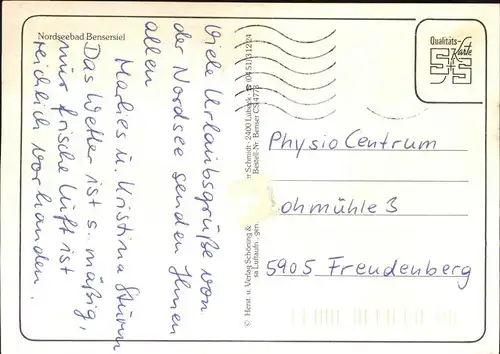 Nordseebad Bensersiel
Viele Urlaubsgrüße von
der Nordsee senden Ihnen
allen
Marlies u. Kristina Sturm
Das Wetter ist s. mäßig,
nur frische Luft ist
reichlich vorhanden.
© Herst. u. Verlag Schöning &
Schmidt · 2400 Lübeck · ☎ (04 51) 3 12 24
sa Luftaufn., gen.
Bestell-Nr. Benser CS 4773
Qualitäts-
Karte
Physio Centrum
ohmühle 3
5905 Freudenberg